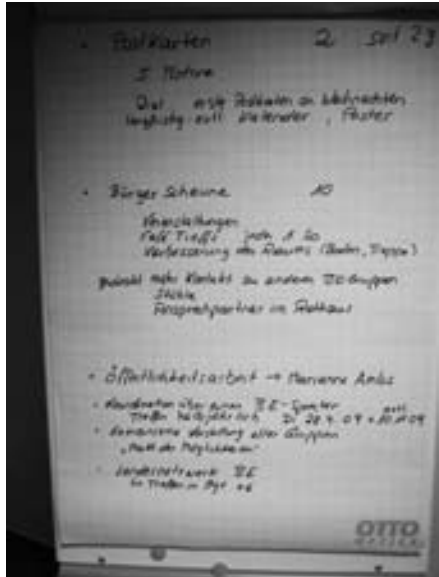 • Postkarten 2
5 Motive
Ziel erste Postkarten an Weihnachten
langfristig evtl. Kalender, Poster
• Bürger Scheune 10
Veranstaltungen
Café Treff jeden
Verbesserung des Raums (Boden, Treppe)
mehr Kontakt zu anderen BE Gruppen
Stühle
Ansprechpartner im Rathaus
• Öffentlichkeitsarbeit → Marianne
• Koordination über einen BE-Sprecher
Treffen halbjährlich Di 28.4.09 +
• Gemeinsame Vorstellung aller Gruppen
„Markt der Möglichkeiten"
• Landesnetzwerk BE
Treffen in
OTTO
OFFICE